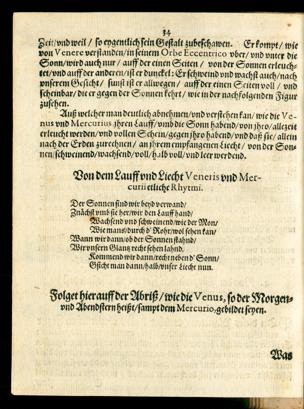 34
Zeit/ und weil / so eygentlich sein Gestalt zubeschawen. Er kompt/ wie
von Venere verstanden/ in seinem Orbe Eccentrico vber/ vnd vnter die
Sonn/ wird auch nur / auff der einen Seiten / von der Sonnen erleuch-
tet/ vnd auff der anderen/ ist er dunckel: Er schweind vnd wachst auch/ nach
vnserem Gesicht/ sunst ist er allwegen/ auff der einen Seiten voll / vnd
scheinbar/ die er gegen der Sonnen kehrt/ wie in der nachfolgenden Figur
zusehen.
Auß welcher man deutlich abnehmen/ vnd verstehen kan/ wie die Ve-
nus vnd Mercurius jhren Lauff/ vmb die Sonn haben/ von jhro/ allezeit
erleucht werden/ vnd vollen Schein/ gegen jhro haben/ vnd daß sie/ allein
nach der Erden zurechnen/ an jhrem empfangenen Liecht/ von der Son-
nen/ schweinend/ wachsend/ voll/ halb voll/ vnd leer werden.
Von dem Lauff vnd Liecht Veneris vnd Mer-
curii etliche Rhytmi.
Der Sonnen sind wir beyd verwand/
Znächst vmb sie her/ wir den Lauff hand/
Wachsend vnd schweinend/ wie der Mon/
Wie mans/ durch d' Rohr/ wol sehen kan/
Wann wir dann/ ob der Sonnen stahnd/
Wir vnsern Glantz recht sehen lahnd.
Kommend wir dann/ recht neben d' Sonn/
Gsicht man dann/ halb/ vnser Liecht nun.
Folget hierauff der Abriß/ wie die Venus, so der Morgen-
vnd Abendstern heißt/ sampt dem Mercurio, gebildet seyen.
Was